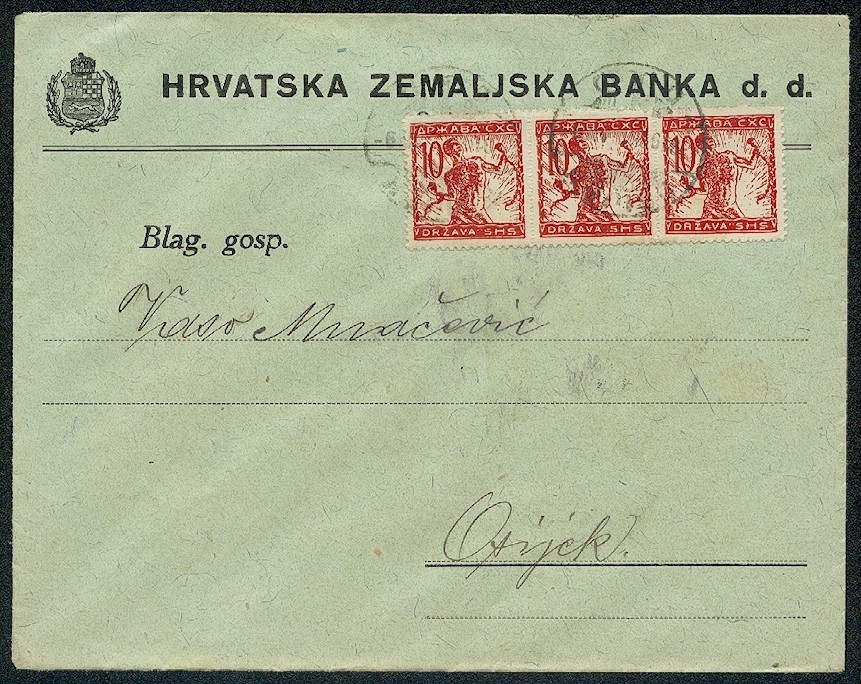 HRVATSKA ZEMALJSKA BANKA d. d.
ДРЖАВА СХС
10
DRŽAVA SHS
ДРЖАВА СХС
10
DRŽAVA SHS
ДРЖАВА СХС
10
DRŽAVA SHS
Blag. gosp.
Vaso Muačević
Osijek.